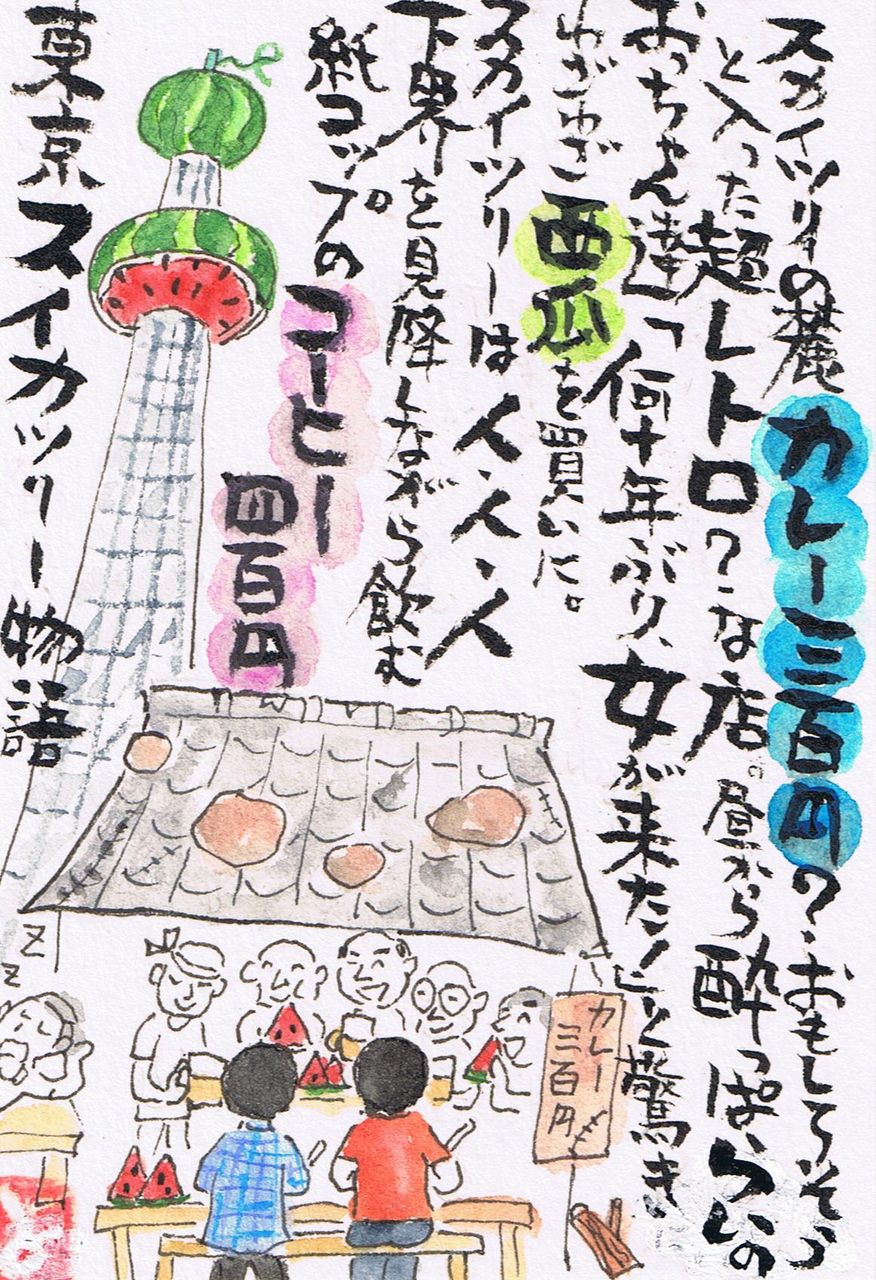 スカイツリーの麓カレー三百円?おもしろそう
と入った超レトロ?な店。昼から酔っぱらいの
おっちゃん達「何十年ぶり、女が来た!」と驚き
わざわざ西瓜を買いに。
スカイツリーは人・人・人
下界を見降しながら飲む
紙コップのコーヒー
四百円
東京スイカツリー物語
カレー
三百円
zz